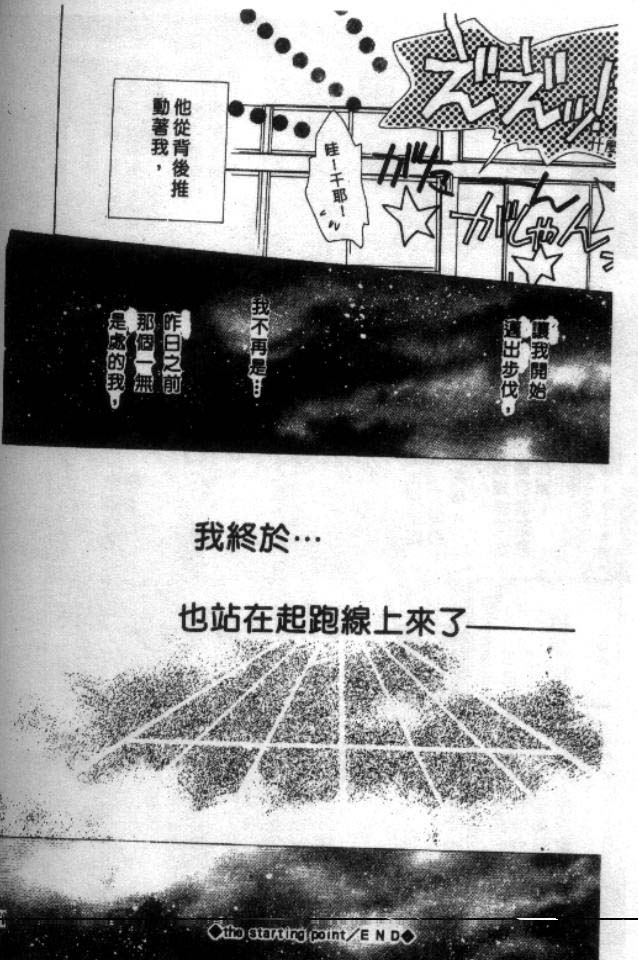 什麼
ずずずッ!
ガタ
がしゃーん
哇ー千耶ー!
他從背後推
動著我,
讓我開始
邁出步伐,
我不再是…
昨日之前
那個一無
是處的我,
我終於…
也站在起跑線上來了———
◆the starting point/END◆